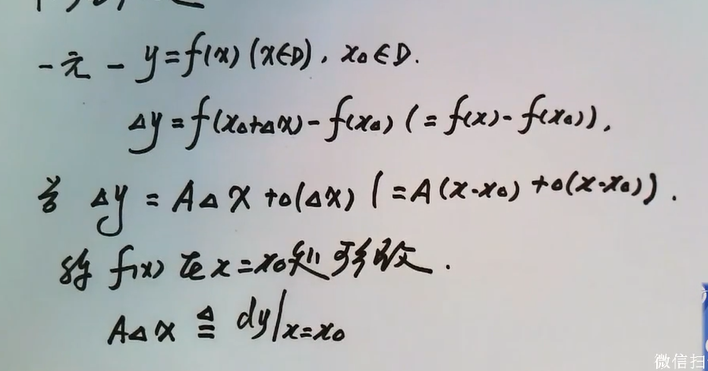 一元 - y=f(x) (x∈D), x₀∈D.
Δy=f(x₀+Δx)-f(x₀) (=f(x)-f(x₀)),
若 Δy=AΔx+o(Δx) (=A(x-x₀)+o(x-x₀)).
称 f(x) 在 x=x₀处可微.
AΔx ≜ dy|x=x₀
微信扫